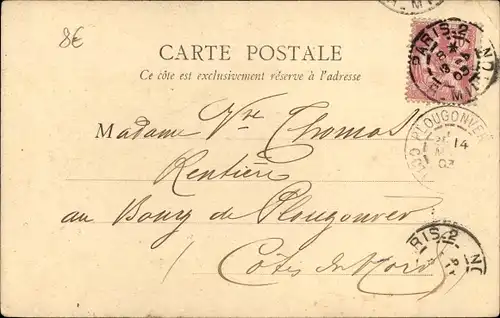 8€
CARTE POSTALE
Ce côté est exclusivement réservé à l'adresse
PARIS-2
Madame Vve Thomas
PLOUGONVER
14
03
Rentière
au Bourg de Plougonver
PARIS-2
Côtes du Nord